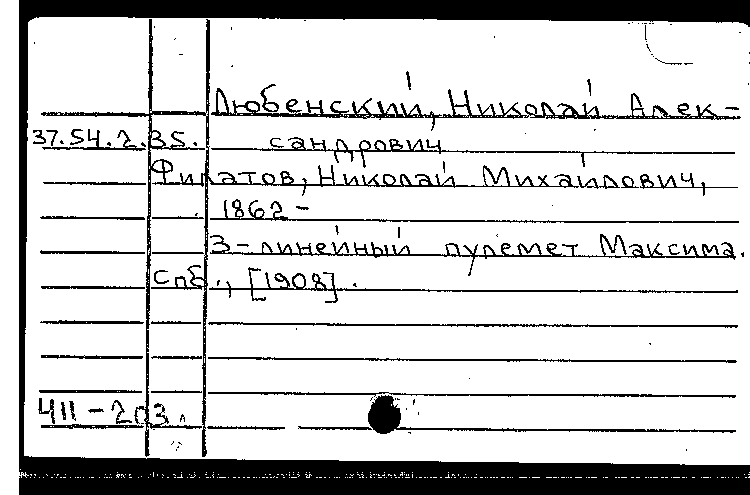 Любенский, Николай Алек-
37.54.2.35. сандрович
Филатов, Николай Михайлович,
1862-
3-линейный пулемет Максима.
спб., [1908].
411-203.